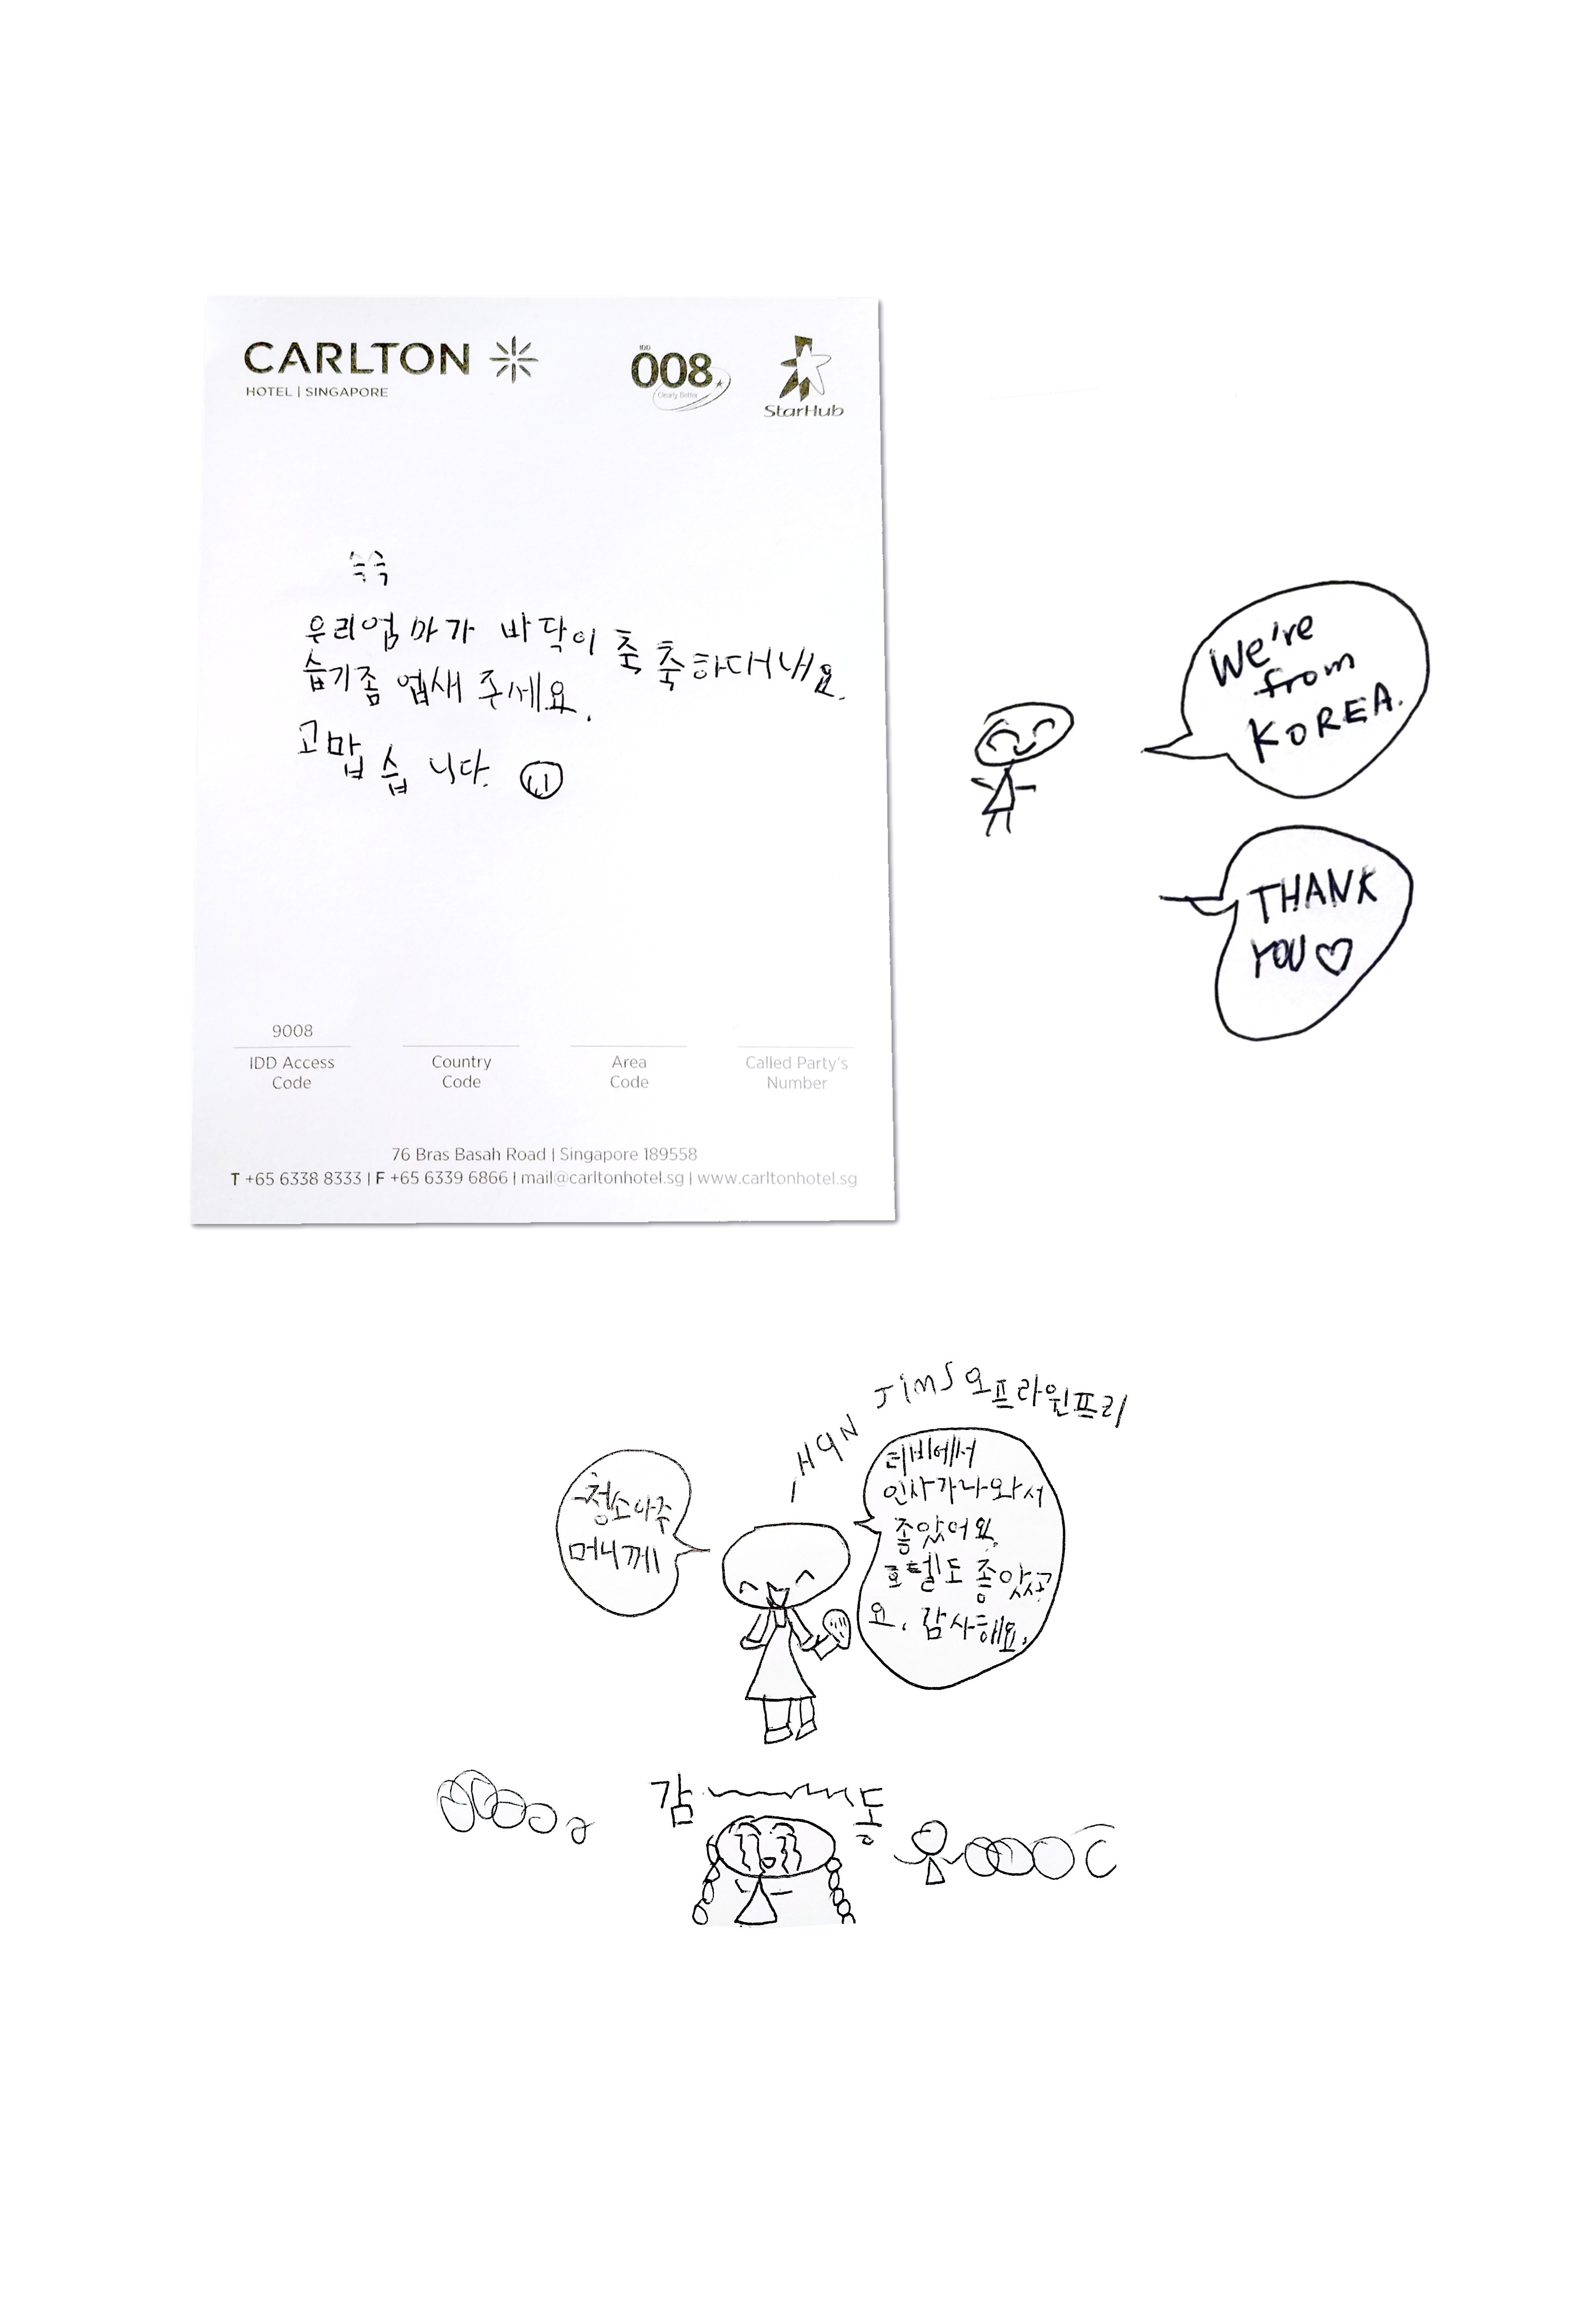 CARLTON
HOTEL | SINGAPORE
IDD
008
Clearly Better
StarHub
쓱쓱
우리엄마가 바닥이 축축하대내요.
습기좀 엡새 주세요.
고맙습니다.
9008
IDD Access Code
Country Code
Area Code
Called Party's Number
76 Bras Basah Road | Singapore 189558
T +65 6338 8333 | F +65 6339 6866 | mail@carltonhotel.sg | www.carltonhotel.sg
We're
from
KOREA.
THANK
YOU♡
오프라윈프리
청소아주
머니께
티비에서
인사가나와서
좋았어요.
호텔도 좋았고
요. 감사해요.
감 동